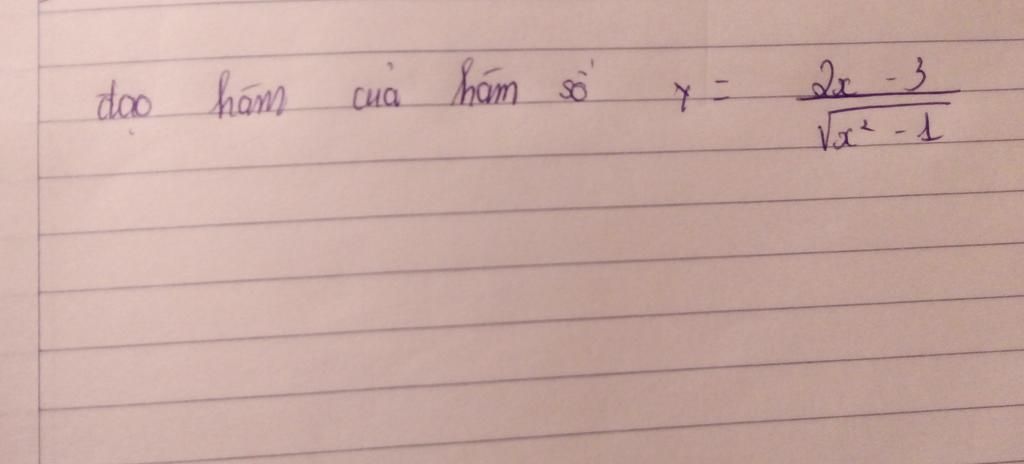 đạo hàm của hàm số y = \frac{2x - 3}{\sqrt{x² - 1}}